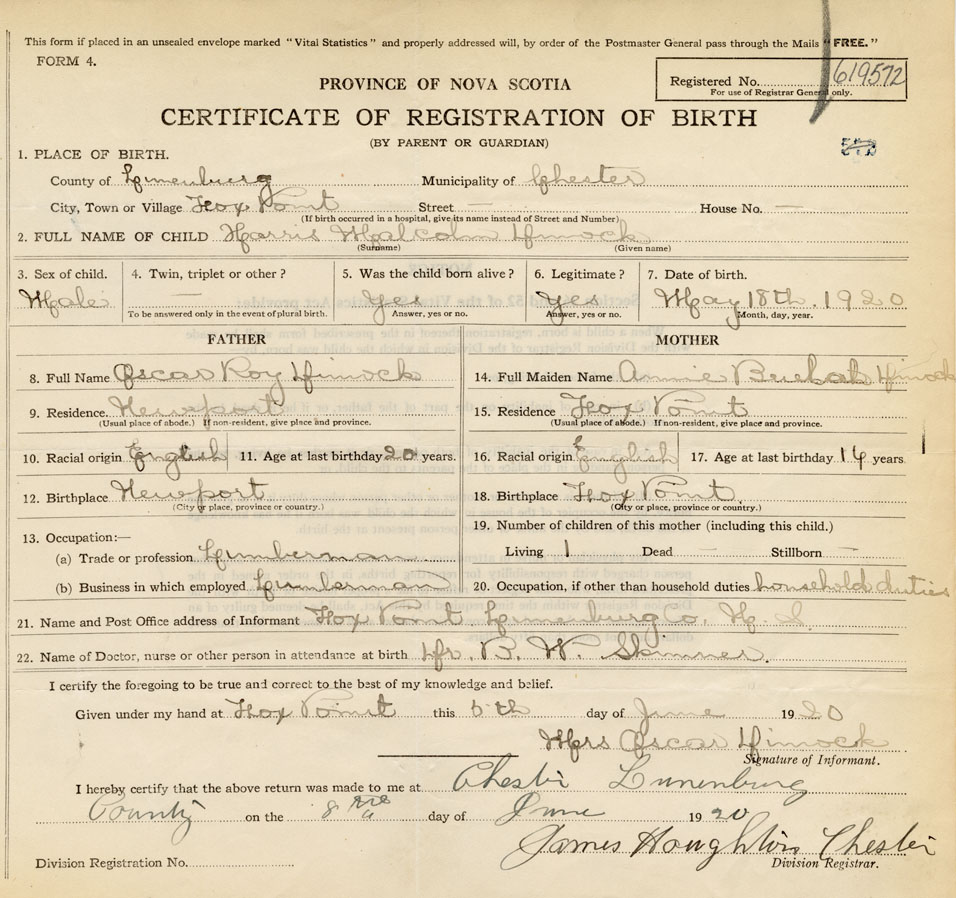 This form if placed in an unsealed envelope marked "Vital Statistics" and properly addressed will, by order of the Postmaster General pass through the Mails "FREE."
FORM 4.
Registered No. 619572
For use of Registrar General only.
PROVINCE OF NOVA SCOTIA
CERTIFICATE OF REGISTRATION OF BIRTH
(BY PARENT OR GUARDIAN)
1. PLACE OF BIRTH.
County of Lunenburg Municipality of Chester
City, Town or Village Fox Point Street — House No. —
(If birth occurred in a hospital, give its name instead of Street and Number)
2. FULL NAME OF CHILD Harris Malcolm Hinnock
(Surname) (Given name)
3. Sex of child. 4. Twin, triplet or other? 5. Was the child born alive? 6. Legitimate? 7. Date of birth.
Male — Yes yes May 18th. 1920
To be answered only in the event of plural birth. Answer, yes or no. Answer, yes or no. Month, day, year.
FATHER MOTHER
8. Full Name Oscar Roy Hinnock 14. Full Maiden Name Annie Beulah Hinnock
9. Residence. Newport 15. Residence Fox Point
(Usual place of abode.) If non-resident, give place and province. (Usual place of abode.) If non-resident, give place and province.
10. Racial origin English 11. Age at last birthday 20 years. 16. Racial origin English 17. Age at last birthday years.
12. Birthplace Newport 18. Birthplace Fox Point.
(City or place, province or country.) (City or place, province or country.)
13. Occupation:— 19. Number of children of this mother (including this child.)
(a) Trade or profession Lumberman Living 1 Dead — Stillborn —
(b) Business in which employed Lumberman 20. Occupation, if other than household duties household duties
21. Name and Post Office address of Informant Fox Point Lunenburg Co. N. S.
22. Name of Doctor, nurse or other person in attendance at birth B. W. Skinner.
I certify the foregoing to be true and correct to the best of my knowledge and belief.
Given under my hand at Fox Point this 5th day of June 1920
Mrs Oscar Hinnock
Signature of Informant.
I hereby certify that the above return was made to me at Chester Lunenburg
County on the 8 day of June 1920
James Houghton Chester
Division Registration No. Division Registrar.